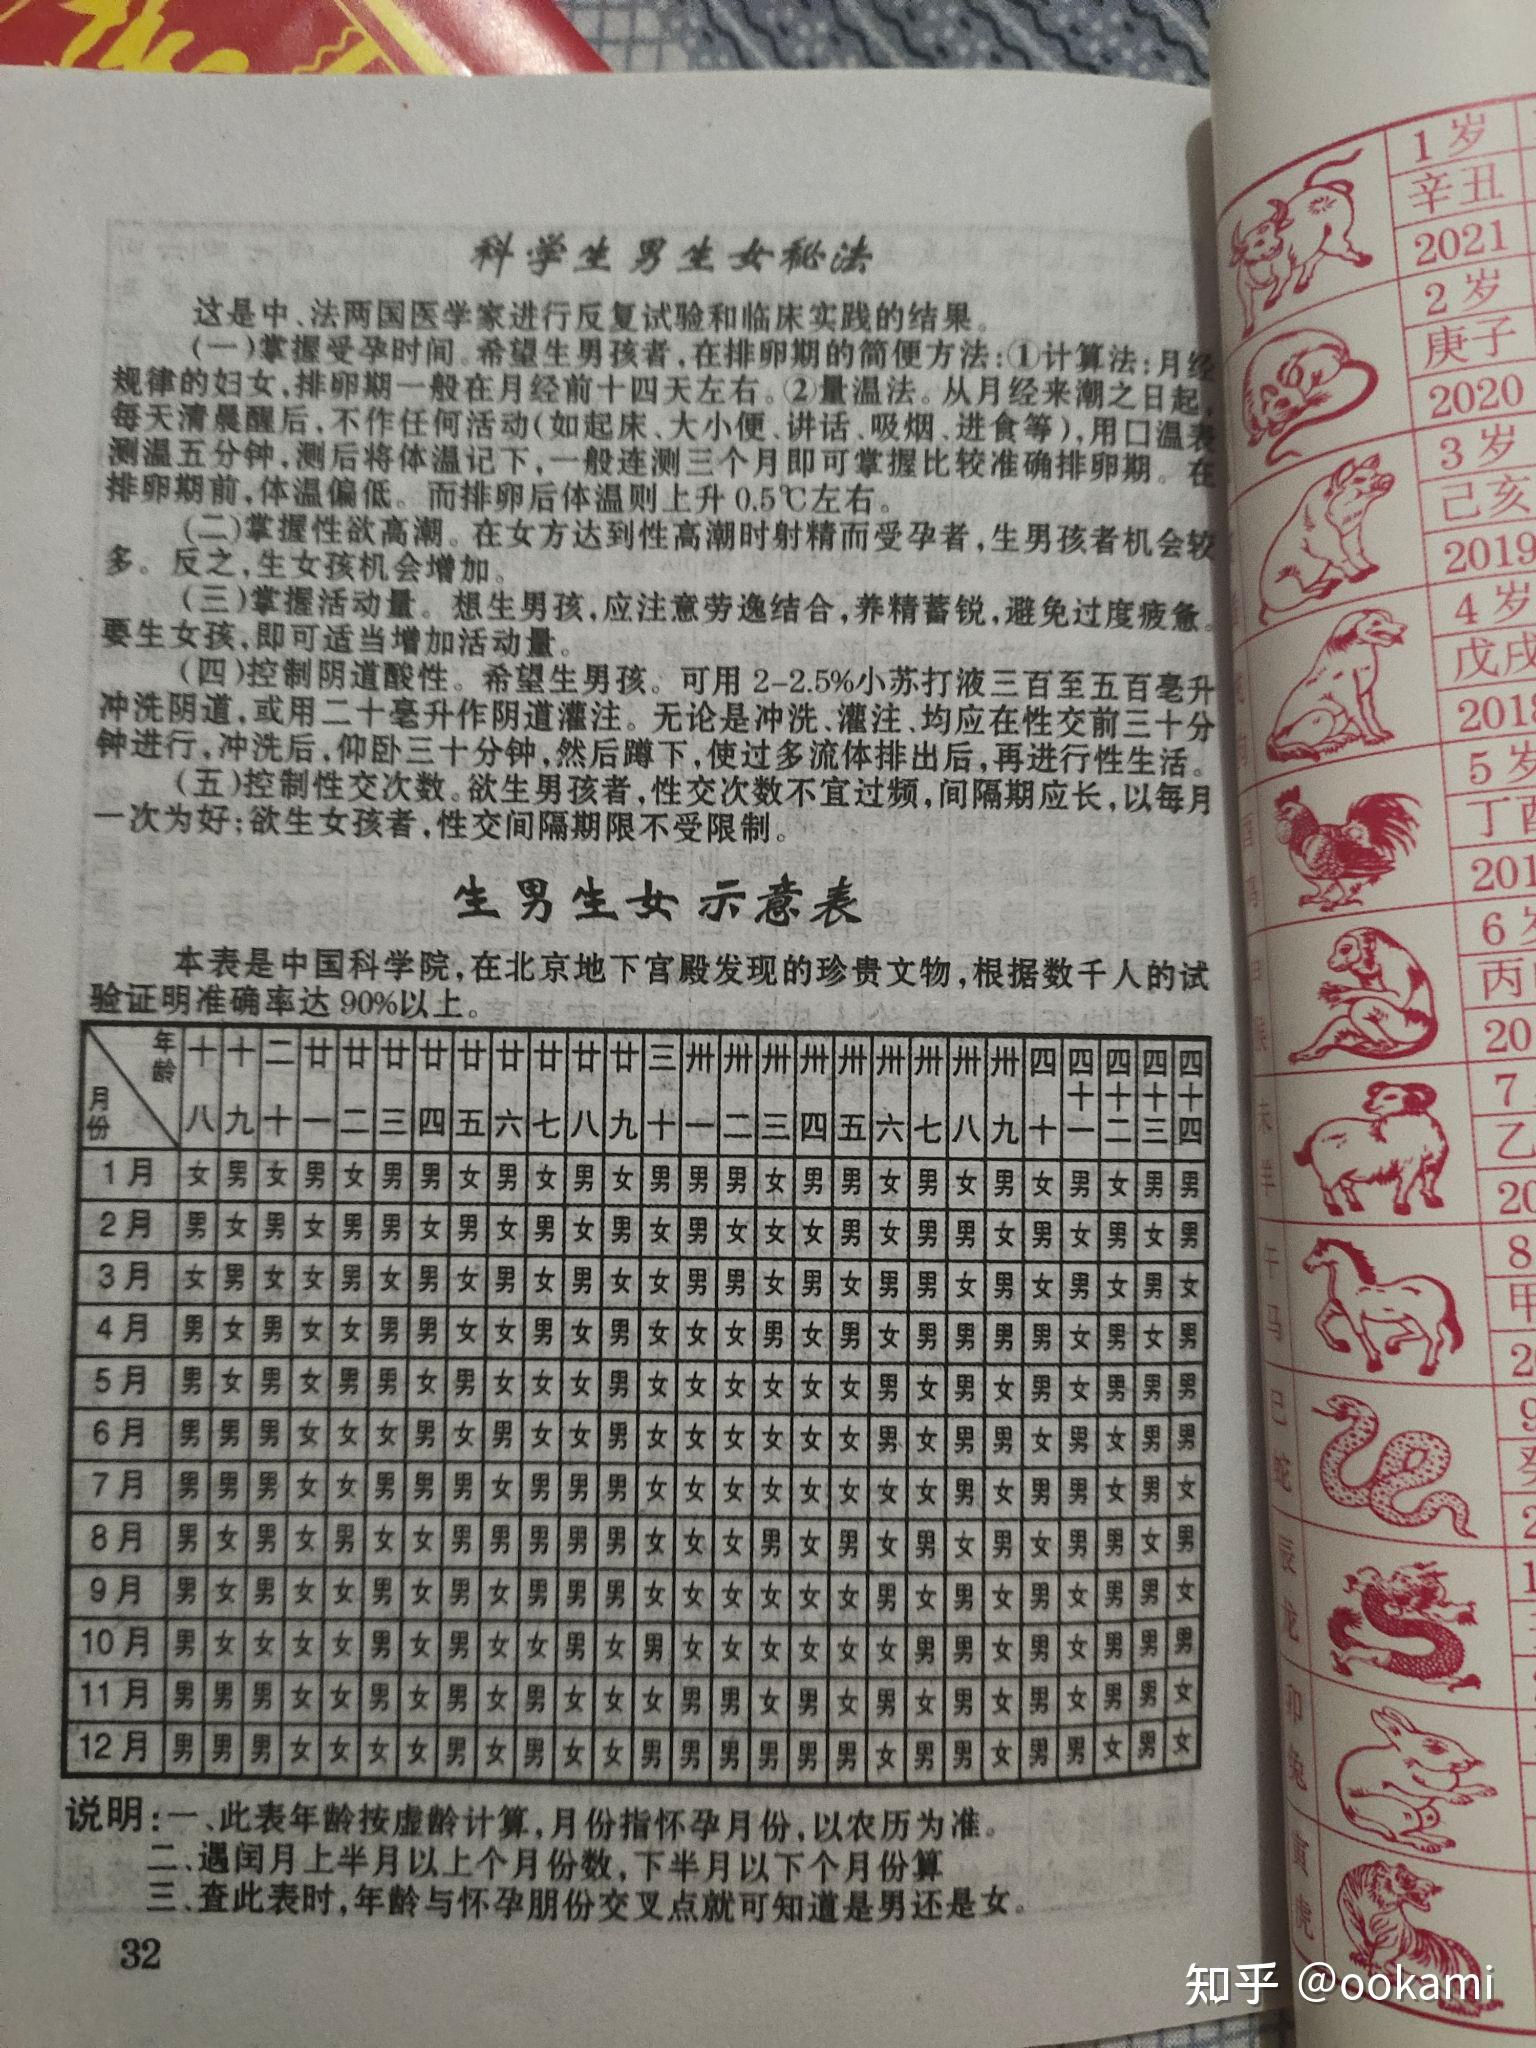 科学生男生女秘法
这是中、法两国医学家进行反复试验和临床实践的结果。
(一)掌握受孕时间。希望生男孩者,在排卵期的简便方法:①计算法:月经
规律的妇女,排卵期一般在月经前十四天左右。②量温法。从月经来潮之日起,
每天清晨醒后,不作任何活动(如起床、大小便、讲话、吸烟、进食等),用口温表
测温五分钟,测后将体温记下,一般连测三个月即可掌握比较准确排卵期。在
排卵期前,体温偏低。而排卵后体温则上升0.5℃左右。
(二)掌握性欲高潮。在女方达到性高潮时射精而受孕者,生男孩者机会较
多。反之,生女孩机会增加。
(三)掌握活动量。想生男孩,应注意劳逸结合,养精蓄锐,避免过度疲惫。
要生女孩,即可适当增加活动量。
(四)控制阴道酸性。希望生男孩。可用2-2.5%小苏打液三百至五百毫升
冲洗阴道,或用二十毫升作阴道灌注。无论是冲洗、灌注、均应在性交前三十分
钟进行,冲洗后,仰卧三十分钟,然后蹲下,使过多流体排出后,再进行性生活。
(五)控制性交次数。欲生男孩者,性交次数不宜过频,间隔期应长,以每月
一次为好;欲生女孩者,性交间隔期限不受限制。
生男生女示意表
本表是中国科学院,在北京地下宫殿发现的珍贵文物,根据数千人的试
验证明准确率达90%以上。
年龄 月份 十八 十九 二十 廿一 廿二 廿三 廿四 廿五 廿六 廿七 廿八 廿九 三十 卅一 卅二 卅三 卅四 卅五 卅六 卅七 卅八 卅九 四十 四十一 四十二 四十三 四十四
1月 女 男 女 男 女 男 男 女 男 女 男 女 男 男 男 女 男 男 女 男 女 男 女 男 女 男 男
2月 男 女 男 女 男 男 女 男 女 男 女 男 女 男 女 女 女 男 女 男 男 女 男 女 男 女 男
3月 女 男 女 女 男 女 男 女 男 女 男 女 女 男 男 女 男 女 男 男 女 男 女 男 女 男 女
4月 男 女 男 女 女 男 男 女 女 男 女 男 女 女 女 男 女 男 女 男 男 男 男 女 男 女 男
5月 男 女 男 女 男 男 女 男 女 女 女 男 女 女 女 女 女 女 男 女 男 女 男 女 男 男 男
6月 男 男 男 女 女 女 男 女 男 女 女 男 女 女 女 女 女 女 男 女 男 男 女 男 女 男 男
7月 男 男 男 女 女 男 男 男 女 男 男 男 女 女 女 女 女 女 女 女 男 女 男 男 女 男 女
8月 男 女 男 女 男 女 女 男 男 男 男 男 女 女 女 男 女 男 女 男 女 男 女 男 男 女 男
9月 男 女 男 女 女 男 女 男 女 男 男 男 女 女 女 女 女 女 男 女 男 女 男 女 男 男 女
10月 男 女 女 女 女 男 女 男 女 女 男 女 男 女 女 女 女 女 女 男 男 女 男 女 男 男 男
11月 男 男 男 女 女 男 女 男 女 男 女 女 女 男 男 女 男 女 男 男 女 男 女 女 男 男 女
12月 男 男 男 女 女 女 女 男 女 男 女 女 男 男 男 男 男 男 女 男 男 女 男 男 女 男 女
说明:一、此表年龄按虚龄计算,月份指怀孕月份,以农历为准。
二、遇闰月上半月以上个月份数,下半月以下个月份算
三、查此表时,年龄与怀孕朋份交叉点就可知道是男还是女。
32
1岁
辛丑
2021
2岁
庚子
2020
3岁
己亥
2019
4岁
戊戌
2018
5岁
丁酉
201
6岁
丙
20
7
乙
20
8
甲
20
9
癸
2
知乎 @ookami